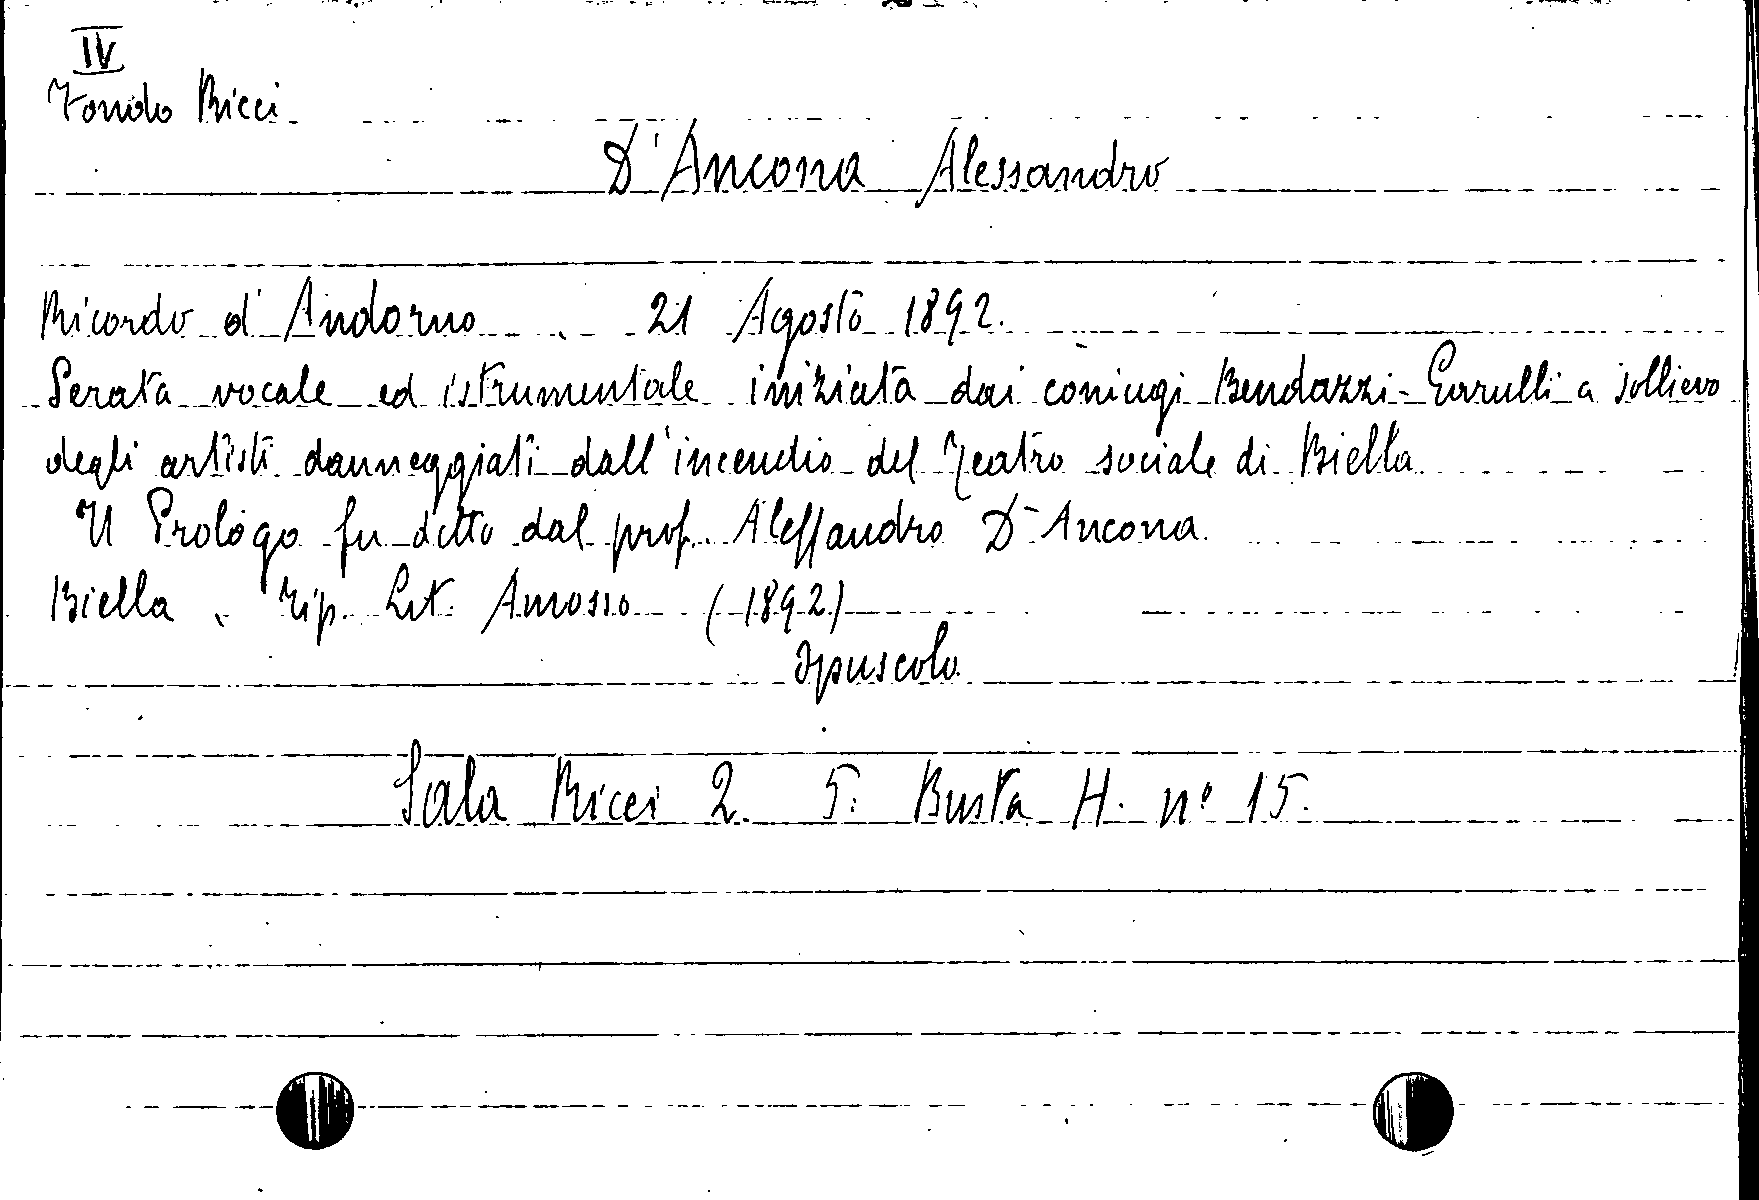 IV
Fondo Ricci
D'Ancona Alessandro
Ricordo d'Andorno - 21 Agosto 1892.
Serata vocale ed istrumentale iniziata dai coniugi Bendazzi-Garulli a sollievo
degli artisti danneggiati dall'incendio del Teatro sociale di Biella
Il Prologo fu detto dal prof. Alessandro D'Ancona.
Biella, Tip. Lit. Amosso (1892)
opuscolo
Sala Ricci 2. 5. Busta H. nº 15.